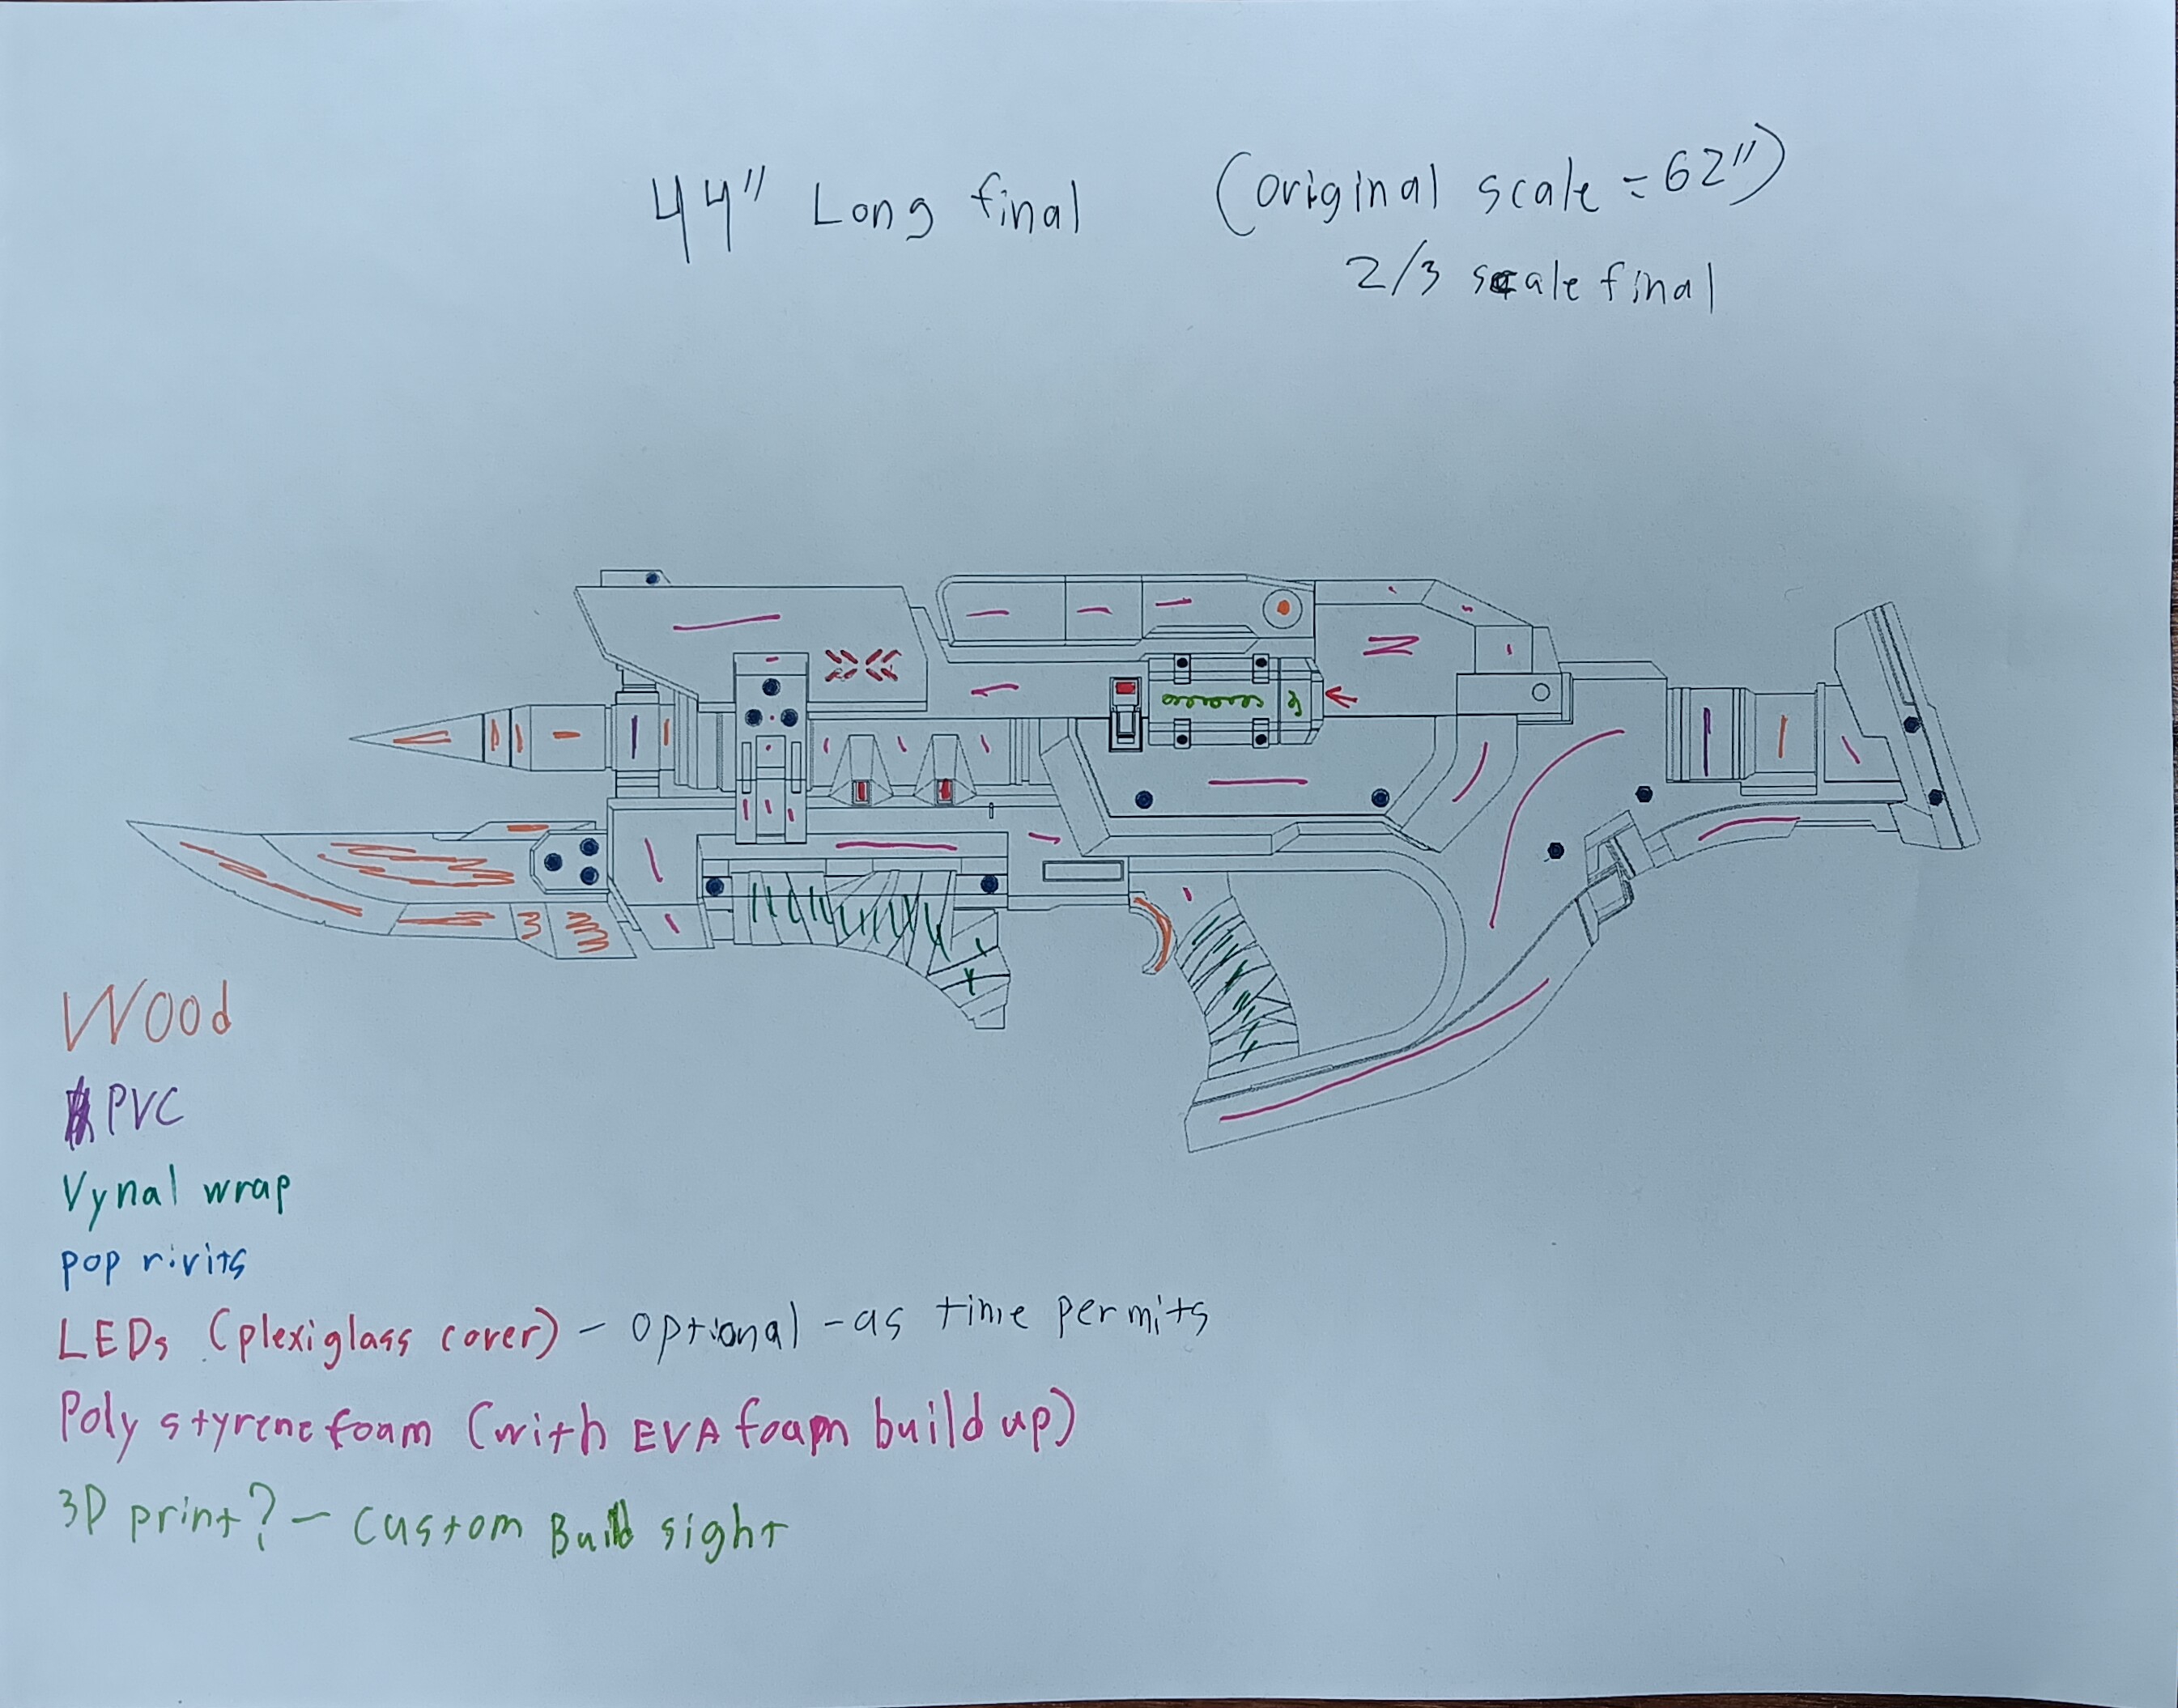 44" Long final (original scale = 62")
2/3 scale final
Wood
PVC
Vynal wrap
pop rivits
LEDs (plexiglass cover) - optional - as time permits
Poly styrene foam (with EVA foam build up)
3D print? - Custom Build sight